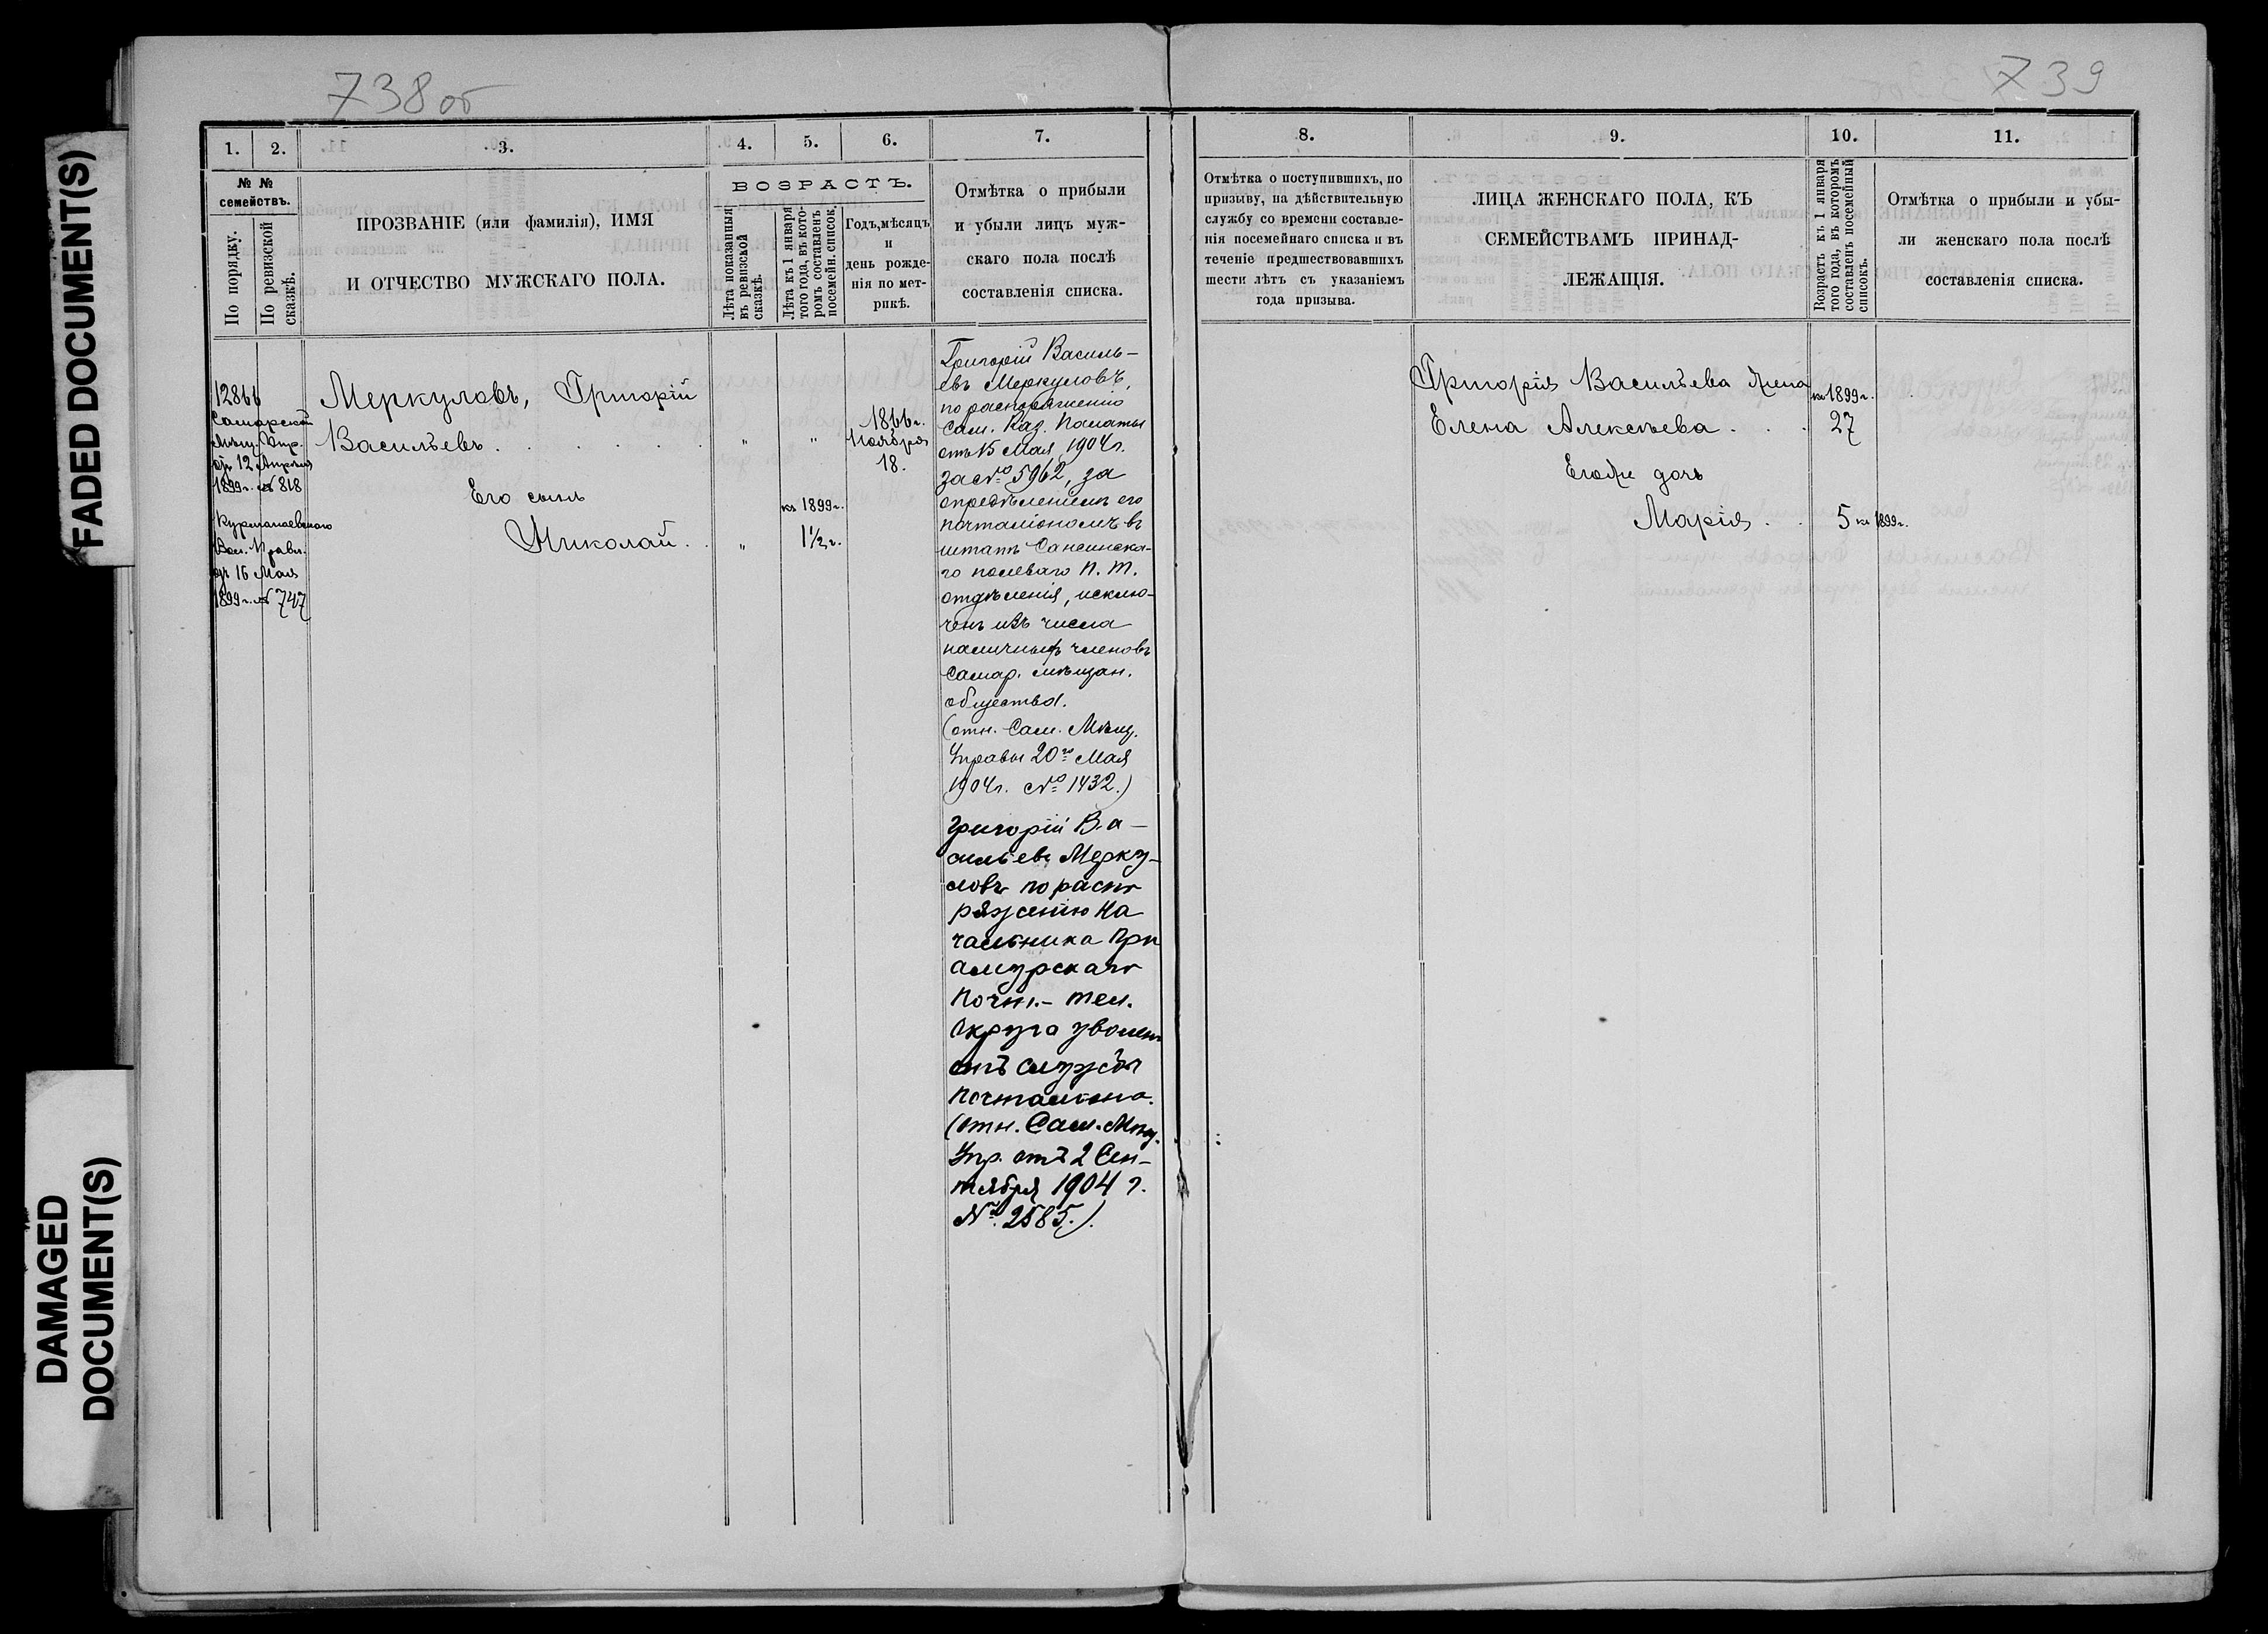 FADED DOCUMENT(S)
DAMAGED
DOCUMENT(S)
738 об
1.
2.
3.
4.
5.
6.
7.
№ №
семействъ.
По порядку.
По ревизской
сказкѣ.
ПРОЗВАНІЕ (или фамилія), ИМЯ
И ОТЧЕСТВО МУЖСКАГО ПОЛА.
ВОЗРАСТЪ.
Лѣта показанныя
въ ревизской
сказкѣ.
Лѣта къ 1 января
того года, въ кото-
ромъ составленъ
посемейн. список.
Годъ, мѣсяцъ
и
день рожде-
нія по мет-
рикѣ.
Отмѣтка о прибыли
и убыли лицъ муж-
скаго пола послѣ
составленія списка.
12866
Самарской
Мѣщ. Упр.
отъ 12 Апрѣля
1899 г. № 818
Курманаевскаго
Вол. Правл.
отъ 16 Мая
1899 г. № 747
Меркуловъ, Григорій
Васильевъ . . . . .
Его сынъ
Николай . .
"
"
1866 г.
Ноября
18.
къ 1899 г.
"
1½ г.
Григорій Василь-
евъ Меркуловъ,
по распоряженію
Сам. Каз. Палаты
отъ 15 Мая 1904 г.
за № 5962, за
опредѣленіемъ его
почталіономъ въ
штатъ Сансинска-
го полеваго П. Т.
отдѣленія, исклю-
ченъ изъ числа
наличныхъ членовъ
Самар. мѣщан.
общества.
(отн. Сам. Мѣщ.
Управы 20го Мая
1904 г. № 1432.)
Григорій Ва-
сильевъ Мерку-
ловъ по распо
ряженію На
чальника При
амурскаго
Почт.- тел.
Округа уволенъ
отъ службы
почталіона.
(отн. Сам. Мѣщ.
Упр. отъ 2 Сен-
тября 1904 г.
№ 2585.).
739
8.
9.
10.
11.
Отмѣтка о поступившихъ, по
призыву, на дѣйствительную
службу со времени составле-
нія посемейнаго списка и въ
теченіе предшествовавшихъ
шести лѣтъ съ указаніемъ
года призыва.
ЛИЦА ЖЕНСКАГО ПОЛА, КЪ
СЕМЕЙСТВАМЪ ПРИНАД-
ЛЕЖАЩІЯ.
Возрастъ къ 1 января
того года, въ которомъ
составленъ посемейный
списокъ.
Отмѣтка о прибыли и убы-
ли женскаго пола послѣ
составленія списка.
Григорія Васильева жена
Елена Алексѣева . . .
къ 1899 г.
27
Его же дочь
Марія . .
5 къ 1899 г.